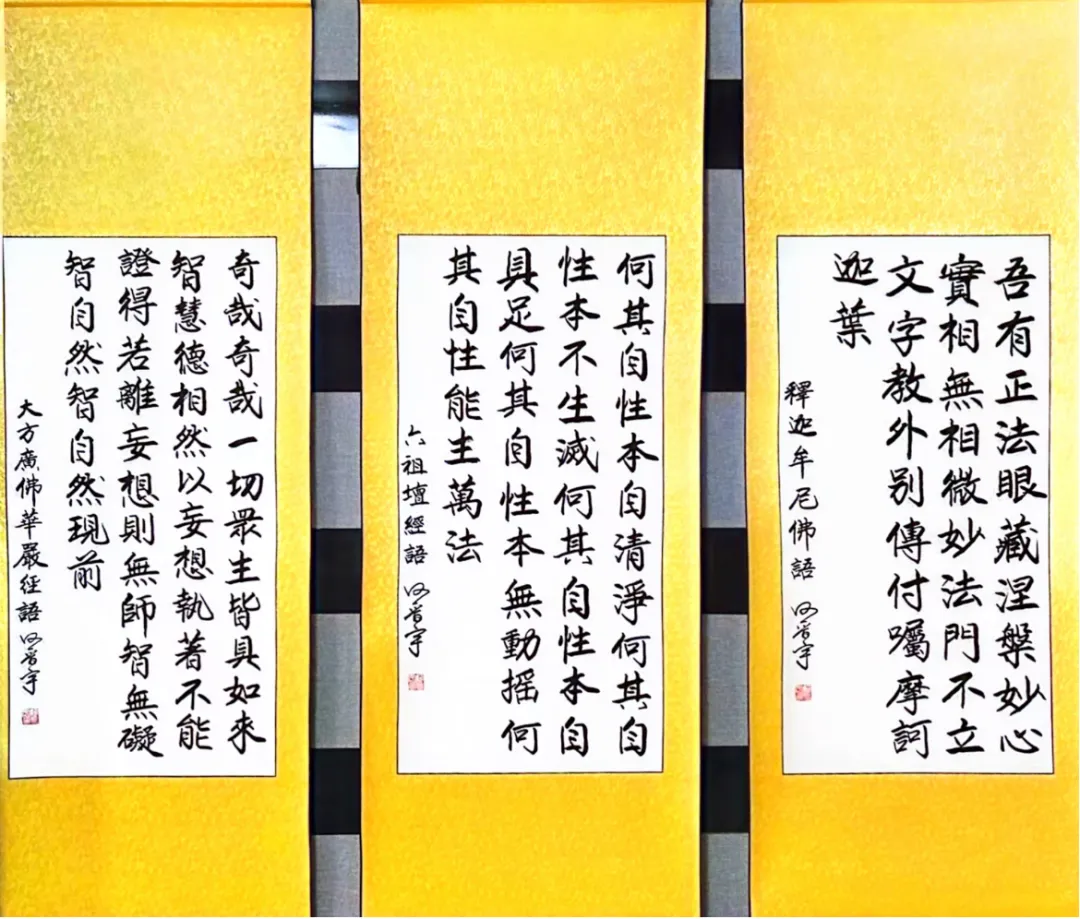 吾有正法眼藏涅槃妙心
實相無相微妙法門不立
文字教外別傳付囑摩訶
迦葉
釋迦牟尼佛語
何其自性本自清淨何其自
性本不生滅何其自性本自
具足何其自性本無動搖何
其自性能生萬法
六祖壇經語
奇哉奇哉一切眾生皆具如來
智慧德相然以妄想執著不能
證得若離妄想則無師智無礙
智自然智自然現前
大方廣佛華嚴經語